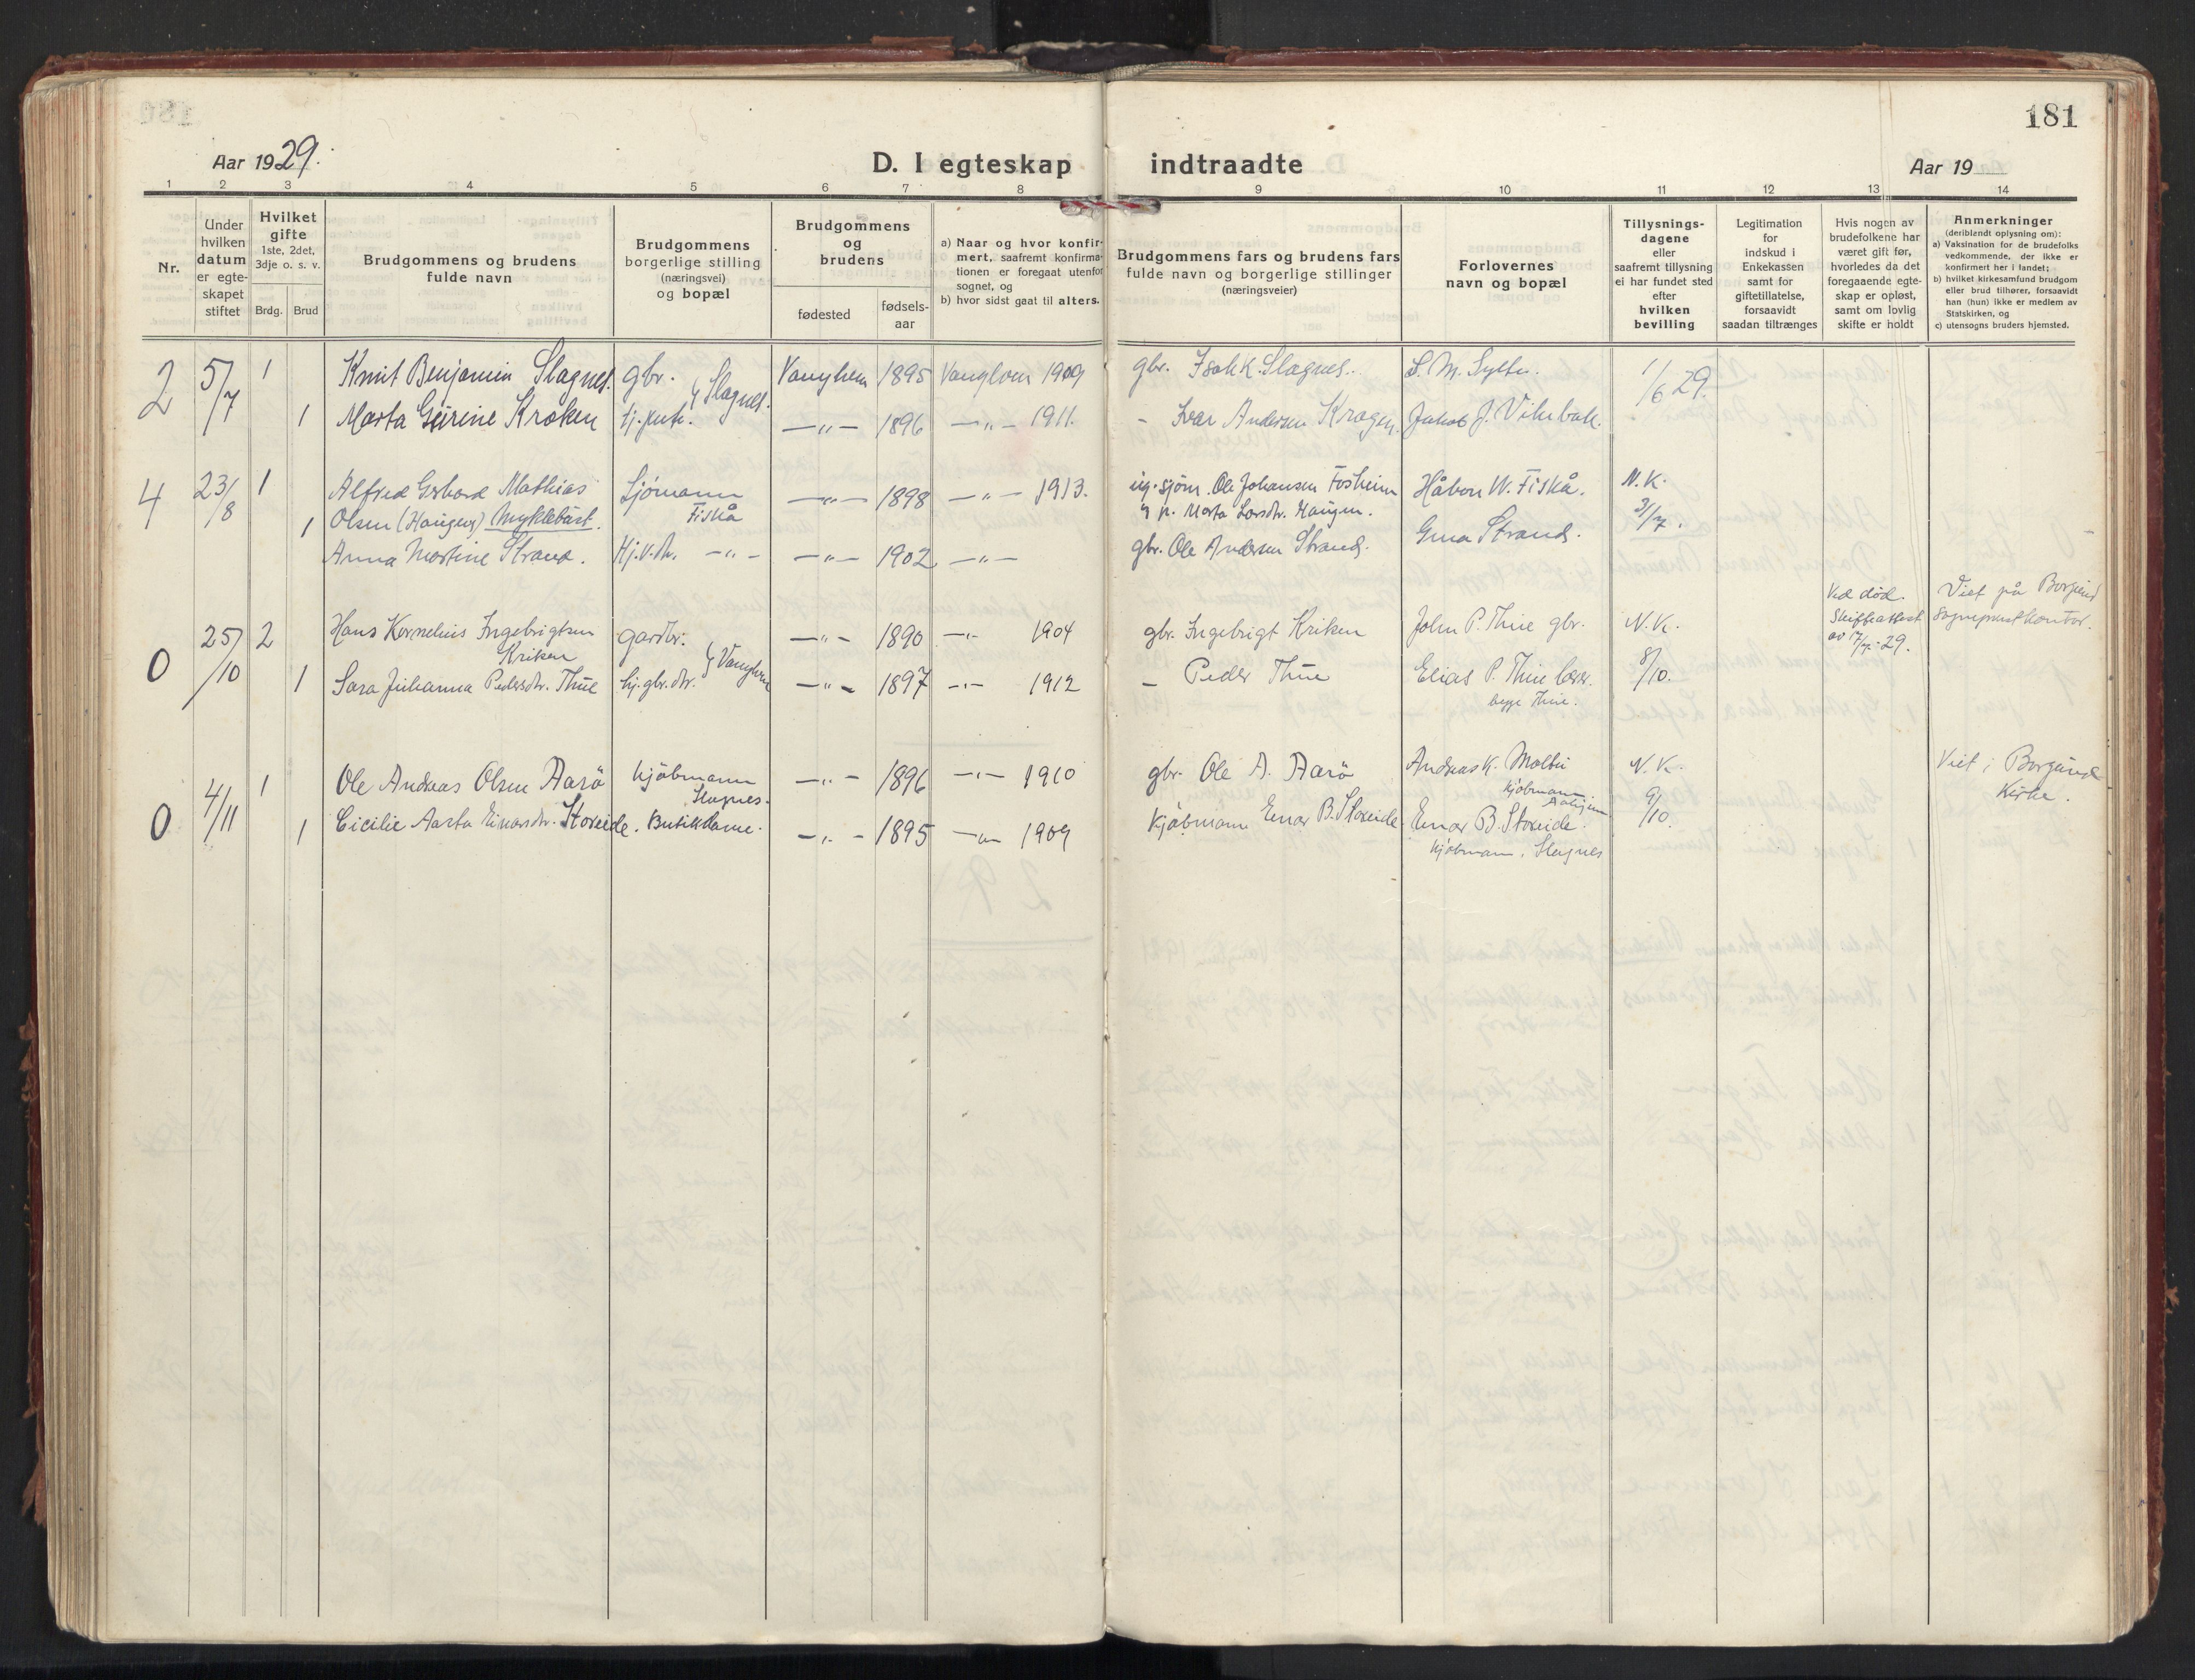 181
Aar 1929.
D. I egteskap indtraadte
Aar 19
1 2 3 4 5 6 7 8 9 10 11 12 13 14
Nr.
Under
hvilken
datum
er egte-
skapet
stiftet
Hvilket
gifte
1ste, 2det,
3dje o. s. v.
Brdg. Brud
Brudgommens og brudens
fulde navn
Brudgommens
borgerlige stilling
(næringsvei)
og bopæl
Brudgommens
og
brudens
fødested
fødsels-
aar
a) Naar og hvor konfir-
mert, saafremt konfirma-
tionen er foregaat utenfor
sognet, og
b) hvor sidst gaat til alters.
Brudgommens fars og brudens fars
fulde navn og borgerlige stillinger
(næringsveier)
Forlovernes
navn og bopæl
Tillysnings-
dagene
eller
saafremt tillysning
ei har fundet sted
efter
hvilken
bevilling
Legitimation
for
indskud i
Enkekassen
samt for
giftetillatelse,
forsaavidt
saadan tiltrænges
Hvis nogen av
brudefolkene har
været gift før,
hvorledes da det
foregaaende egte-
skap er opløst,
samt om lovlig
skifte er holdt
Anmerkninger
(deriblandt oplysning om):
a) Vaksination for de brudefolks
vedkommende, der ikke er
konfirmert her i landet;
b) hvilket kirkesamfund brudgom
eller brud tilhører, forsaavidt
han (hun) ikke er medlem av
Statskirken, og
c) utensogns bruders hjemsted.
2 5/7 1 Knut Benjamin Slagnes. gbr. Slagnes. 1895 1909 gbr. Isak K. Slagnes. S. M. Sylte. 1/6 29.
1 Marta Gurine Kroken 1896 —„— 1911. - Ivar Andersen Jakob J.
4 23/8 1 Alfred Gerhard Mathias Sjömann —„— 1898 —„— 1913. ug. sjöm. Ole Johansen Fosheim Håkon W. Fiskå. N.K.
1 Olsen (Haugen) Myklebust. Fiskå p. Marta Larsdtr. Haugen. 31/7.
Anna Martine Strand. —„— —„— 1902 —„— gbr. Ole Andersen Strand. Strand.
0 25/10 2 Hans Kornelius Ingebrigtsen gardbr. —„— 1890 —„— 1904 gbr. Ingebrigt Kriken John P. Thue gbr. N.K. Ved död. Viet på Borgund
Kriken Skifteattest sogneprestkontor.
av 17/7-29.
1 Sara Juhanna Pedersdtr. Thue hj. gbr. dtr. —„— 1897 —„— 1912 - Peder Thue Elias P. Thue 8/10.
begge Thue.
0 4/11 1 Ole Andreas Olsen Aarö Kjöbmann —„— 1896 —„— 1910 gbr. Ole A. Aarö Andreas K. Moltu N.K. Viet i Borgund
Slagnes. Kjöbmann Kirke.
1 Cicilie Aasta Einarsdtr. Storeide. Butikdame. —„— 1895 —„— 1909 Kjöbmann Einar B. Storeide Einar B. Storeide. 9/10.
Kjöbmann, Slagnes